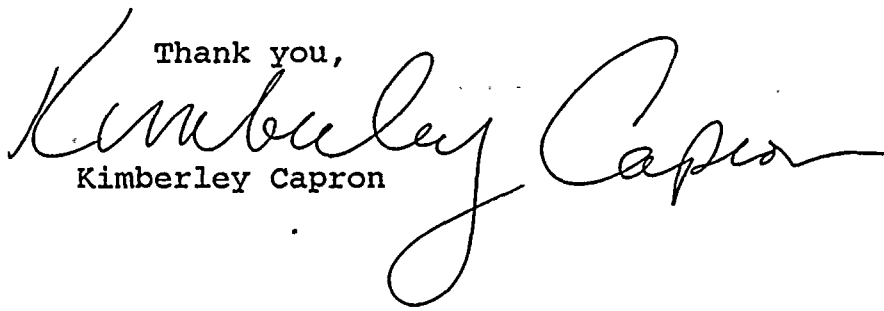 Thank you,
Kimberley Capron
Kimberley Capron